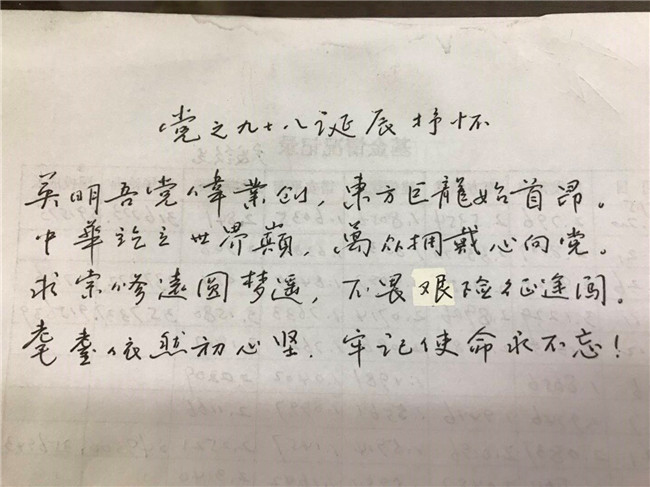 党之九十八诞辰抒怀
英明吾党偉業创，東方巨龍始首昂。
中華讫立世界巔，萬众拥戴心向党。
求索修遠圆梦遥，不畏艰险征途闯。
耄耋依然初心坚．牢记使命永不忘！